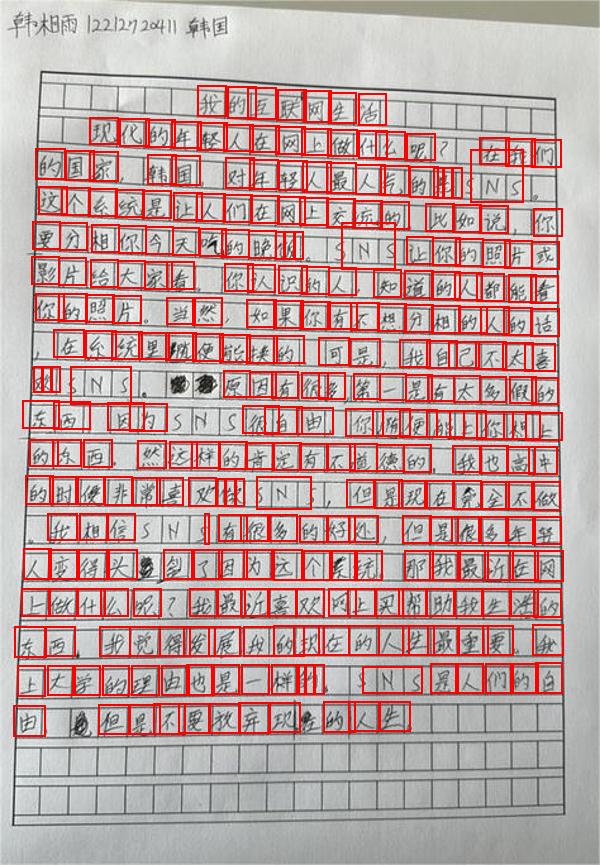 韩相雨 12212720411 韩国
我的互联网生活
现代的年轻人在网上做什么呢？ 在我们
的国家，韩国，对年轻人最人气的是SNS。
这个系统是让人们在网上交流的。比如说，你
要分相你今天吃的晚饭。SNS让你的照片或
影片给大家看。你认识的人，知道的人都能看
你的照片。当然，如果你有不想分相的人的话
，在系统里随便能接的。可是，我自己不太喜
欢SNS。 原因有很多，第一是有太多假的
东西。因为SNS很自由，你随便能上你想上
的东西。然这样的肯定有不道德的。我也高中
的时候非常喜欢做SNS，但是现在完全不做
。我相信SNS有很多的好处，但是很多年轻
人变得头 了因为这个系统。那我最近在网
上做什么呢？我最近喜欢网上买帮助我生活的
东西。我觉得发展我的现在的人生最重要。我
上大学的理由也是一样的。SNS是人们的自
由， 但是不要放弃现在的人生。